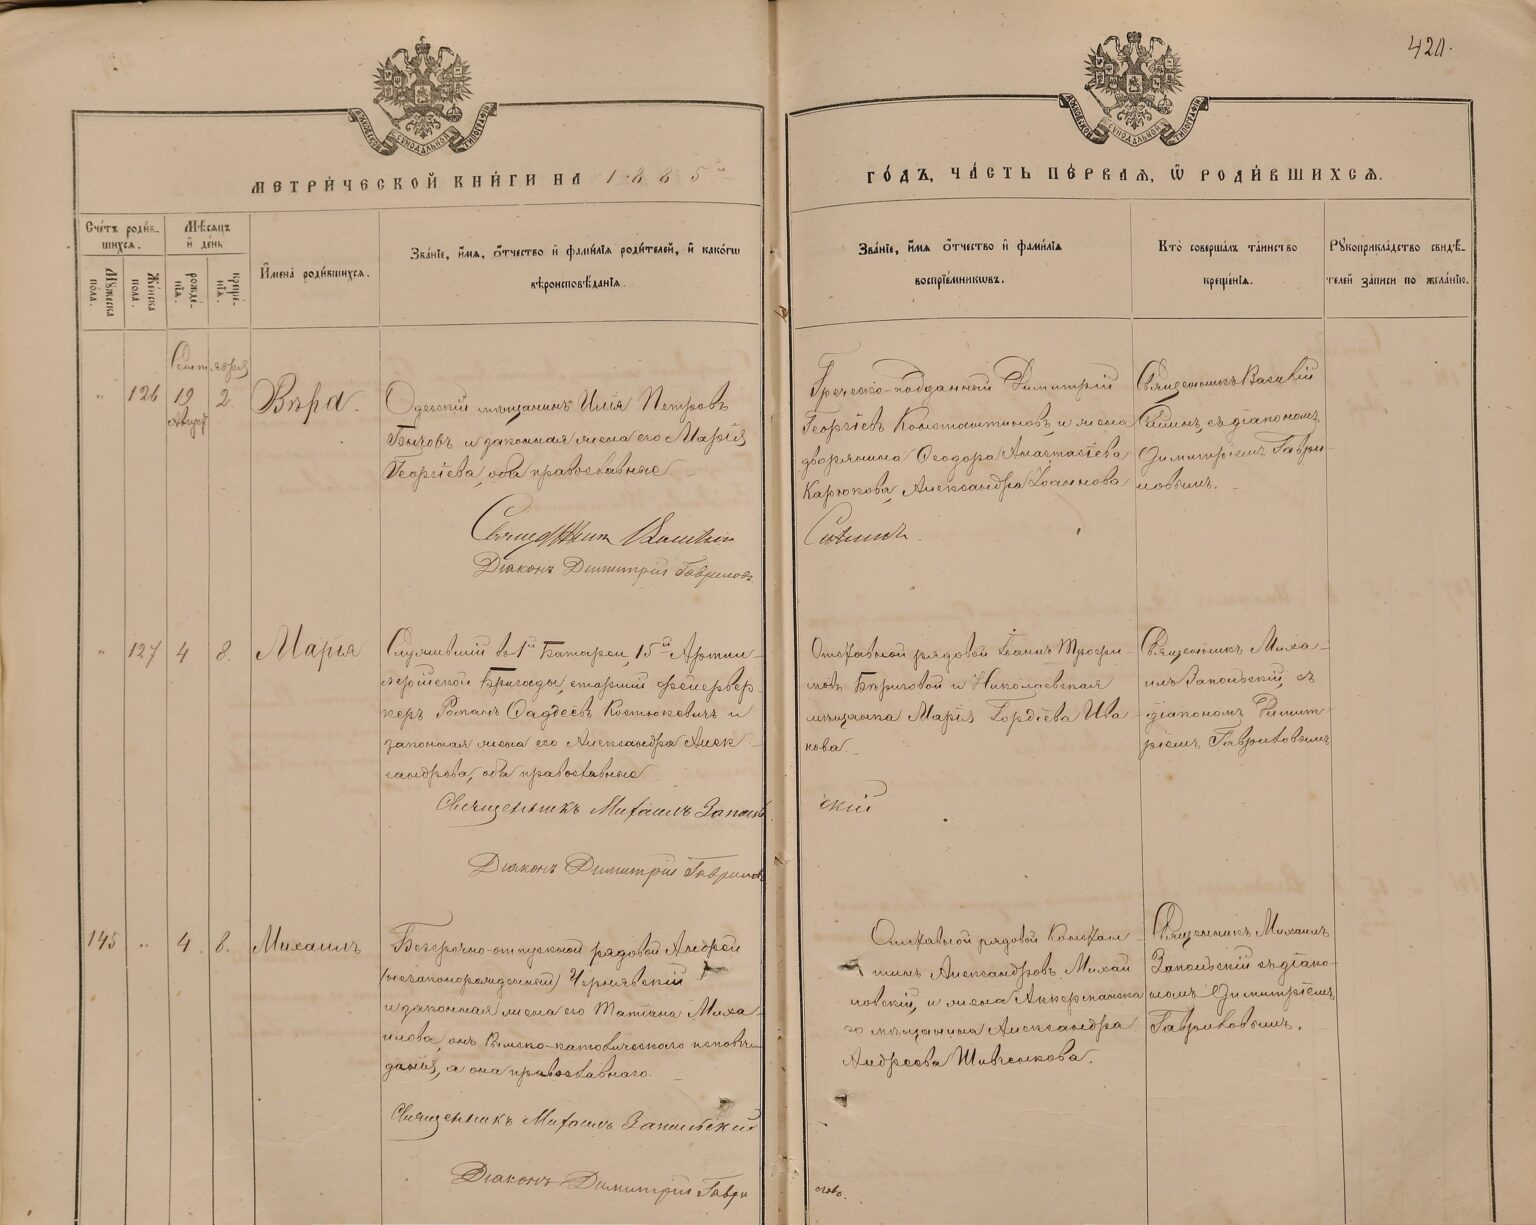 420.
МОСКОВСКОЙ СѴНОДАЛЬНОЙ ТИПОГРАФІИ
МОСКОВСКОЙ СѴНОДАЛЬНОЙ ТИПОГРАФІИ
МЕТРИ́ЧЕСКОЙ КНИ́ГИ НА 1885й
ГО́ДЪ, ЧА́СТЬ ПЕ́РВАѦ, Ѡ҆ РОДИ́ВШИХСѦ.
Сче́тъ роди́в-
шихсѧ.
Мѣ́сѧцъ
и҆ день
Мꙋ́жеска
по́ла.
Же́нска
пола.
рожде́-
нїѧ.
креще́-
нїѧ.
И҆мена̀ роди́вшихсѧ.
Зва́нїе, и҆́мѧ, ѻ҆́тчество и҆ фами́лїѧ роди́телей, и҆ како́гѡ
вѣроисповѣ́данїѧ.
Зва́нїе, и҆́мѧ ѻ҆́тчество и҆ фами́лїѧ
воспрїе́мникѡвъ.
Кто̀ соверша́лъ та́инство
креще́нїѧ.
Рꙋкоприкла́дство свидѣ́-
телей за́писи по жела́нїю.
Сентября
" 126 19 2 Вѣра.
Август
Одесскій мѣщанинъ Илія Петровъ
Бычовъ и законная жена его Марія
Георгіева, оба православные.
Священник Василій
Діаконъ Димитрій Гавриловъ
Греческо-подданный Димитрій
Георгіевъ Константиновъ, и жена
дворянина Ѳеодора Анастасіева
Карюкова, Александра Іоаннова
Священникъ Василій
съ діакономъ
Димитріемъ Гаври-
ловымъ.
" 127 4 8. Марія
Служившій въ 1й Батареи, 15й Артил-
лерійской Бригады, старшій фейервер-
керъ Романъ Ѳаддеевъ Костюкевичъ и
законная жена его Александра Алек-
сандрова, оба православные
Священникъ Михаилъ Заполь
скій
Діаконъ Димитрій Гавриловъ
Отставной рядовой Іоаннъ Трофи-
мовъ Бѣриговой и Николаевская
мѣщанка Марія Гордіева Ива-
нова
Священникъ Миха-
илъ Запольскій, съ
діакономъ Димит-
ріемъ Гавриловымъ
145 " 4 8. Михаилъ
Безсрочно-отпускной рядовой Андрей
(незаконорожденный) Чернявскій
и законная жена его Татіана Миха-
илова, онъ Римско-католическаго исповѣ-
данія, а она православнаго.
Священникъ Михаилъ Запольскій
Діаконъ Димитрій Гаври
ловъ.
Отставной рядовой Констан-
тинъ Александровъ Михай
ловскій, и жена Аккерманска
го мѣщанина Александра
Андреева Шивченкова.
Священникъ Михаилъ
Запольскій съ діако-
номъ Димитріемъ
Гавриловымъ.